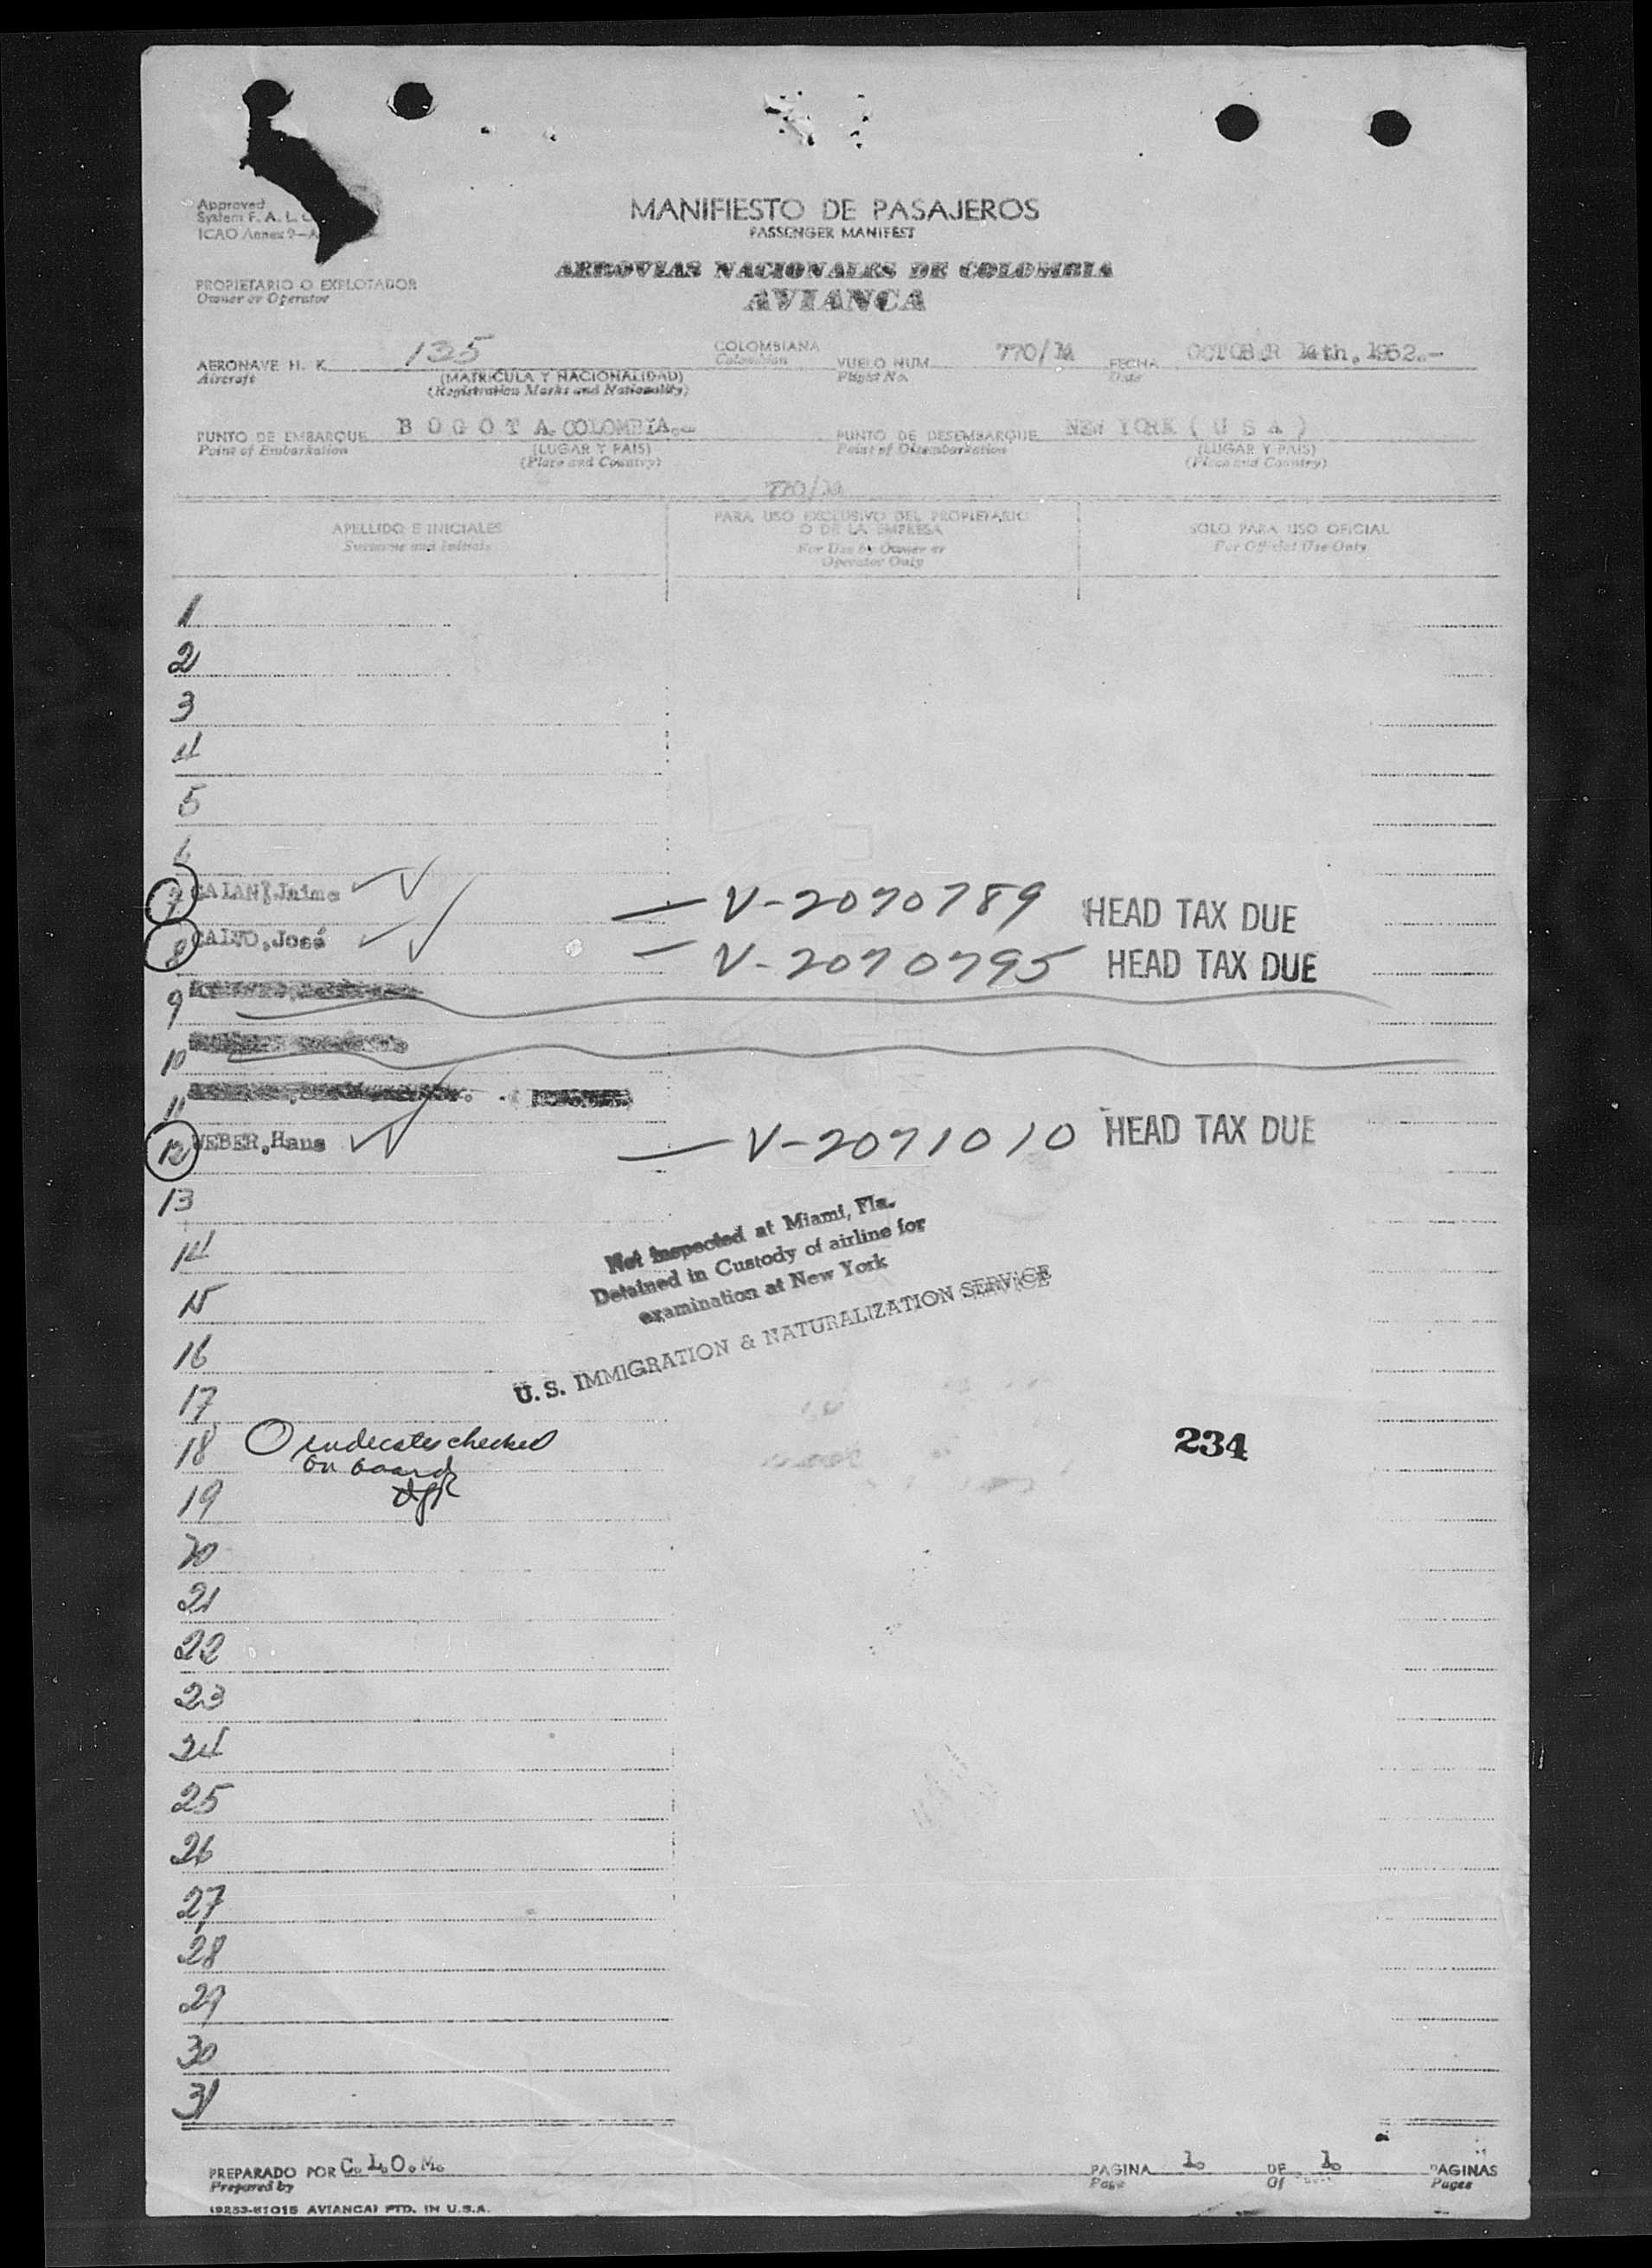 Approved
System F. A. L.
ICAO Annex 9-A
MANIFIESTO DE PASAJEROS
PASSENGER MANIFEST
AEROVIAS NACIONALES DE COLOMBIA
AVIANCA
PROPIETARIO O EXPLOTADOR
Owner or Operator
AERONAVE H. K. 135 COLOMBIANA VUELO NUM. 770/14 FECHA OCTOBER 14th, 1952.-
Aircraft (MATRICULA Y NACIONALIDAD) Colombian Flight No. Date
(Registration Marks and Nationality)
PUNTO DE EMBARQUE B O G O T A. COLOMBIA.- PUNTO DE DESEMBARQUE NEW YORK ( U S A )
Point of Embarkation (LUGAR Y PAIS) Point of Disembarkation (LUGAR Y PAIS)
(Place and Country) (Place and Country)
770/14
APELLIDO E INICIALES PARA USO EXCLUSIVO DEL PROPIETARIO SOLO PARA USO OFICIAL
O DE LA EMPRESA
Surname and Initials For Use by Owner or For Official Use Only
Operator Only
1
2
3
4
5
6
7 Jaime — V-2070789 HEAD TAX DUE
8 CALVO, José — V-2070795 HEAD TAX DUE
9
10
11
12 WEBER, Hans — V-2071010 HEAD TAX DUE
13
Not Inspected at Miami, Fla.
14 Detained in Custody of airline for
15 examination at New York
16 U. S. IMMIGRATION & NATURALIZATION SERVICE
17
18 O indicates checked 234
on board
19
20
21
22
23
24
25
26
27
28
29
30
31
PREPARADO POR C. L. O. M. PAGINA 1. DE 1. PAGINAS
Prepared by Page Of Pages
AVIANCA) PTD. IN U.S.A.